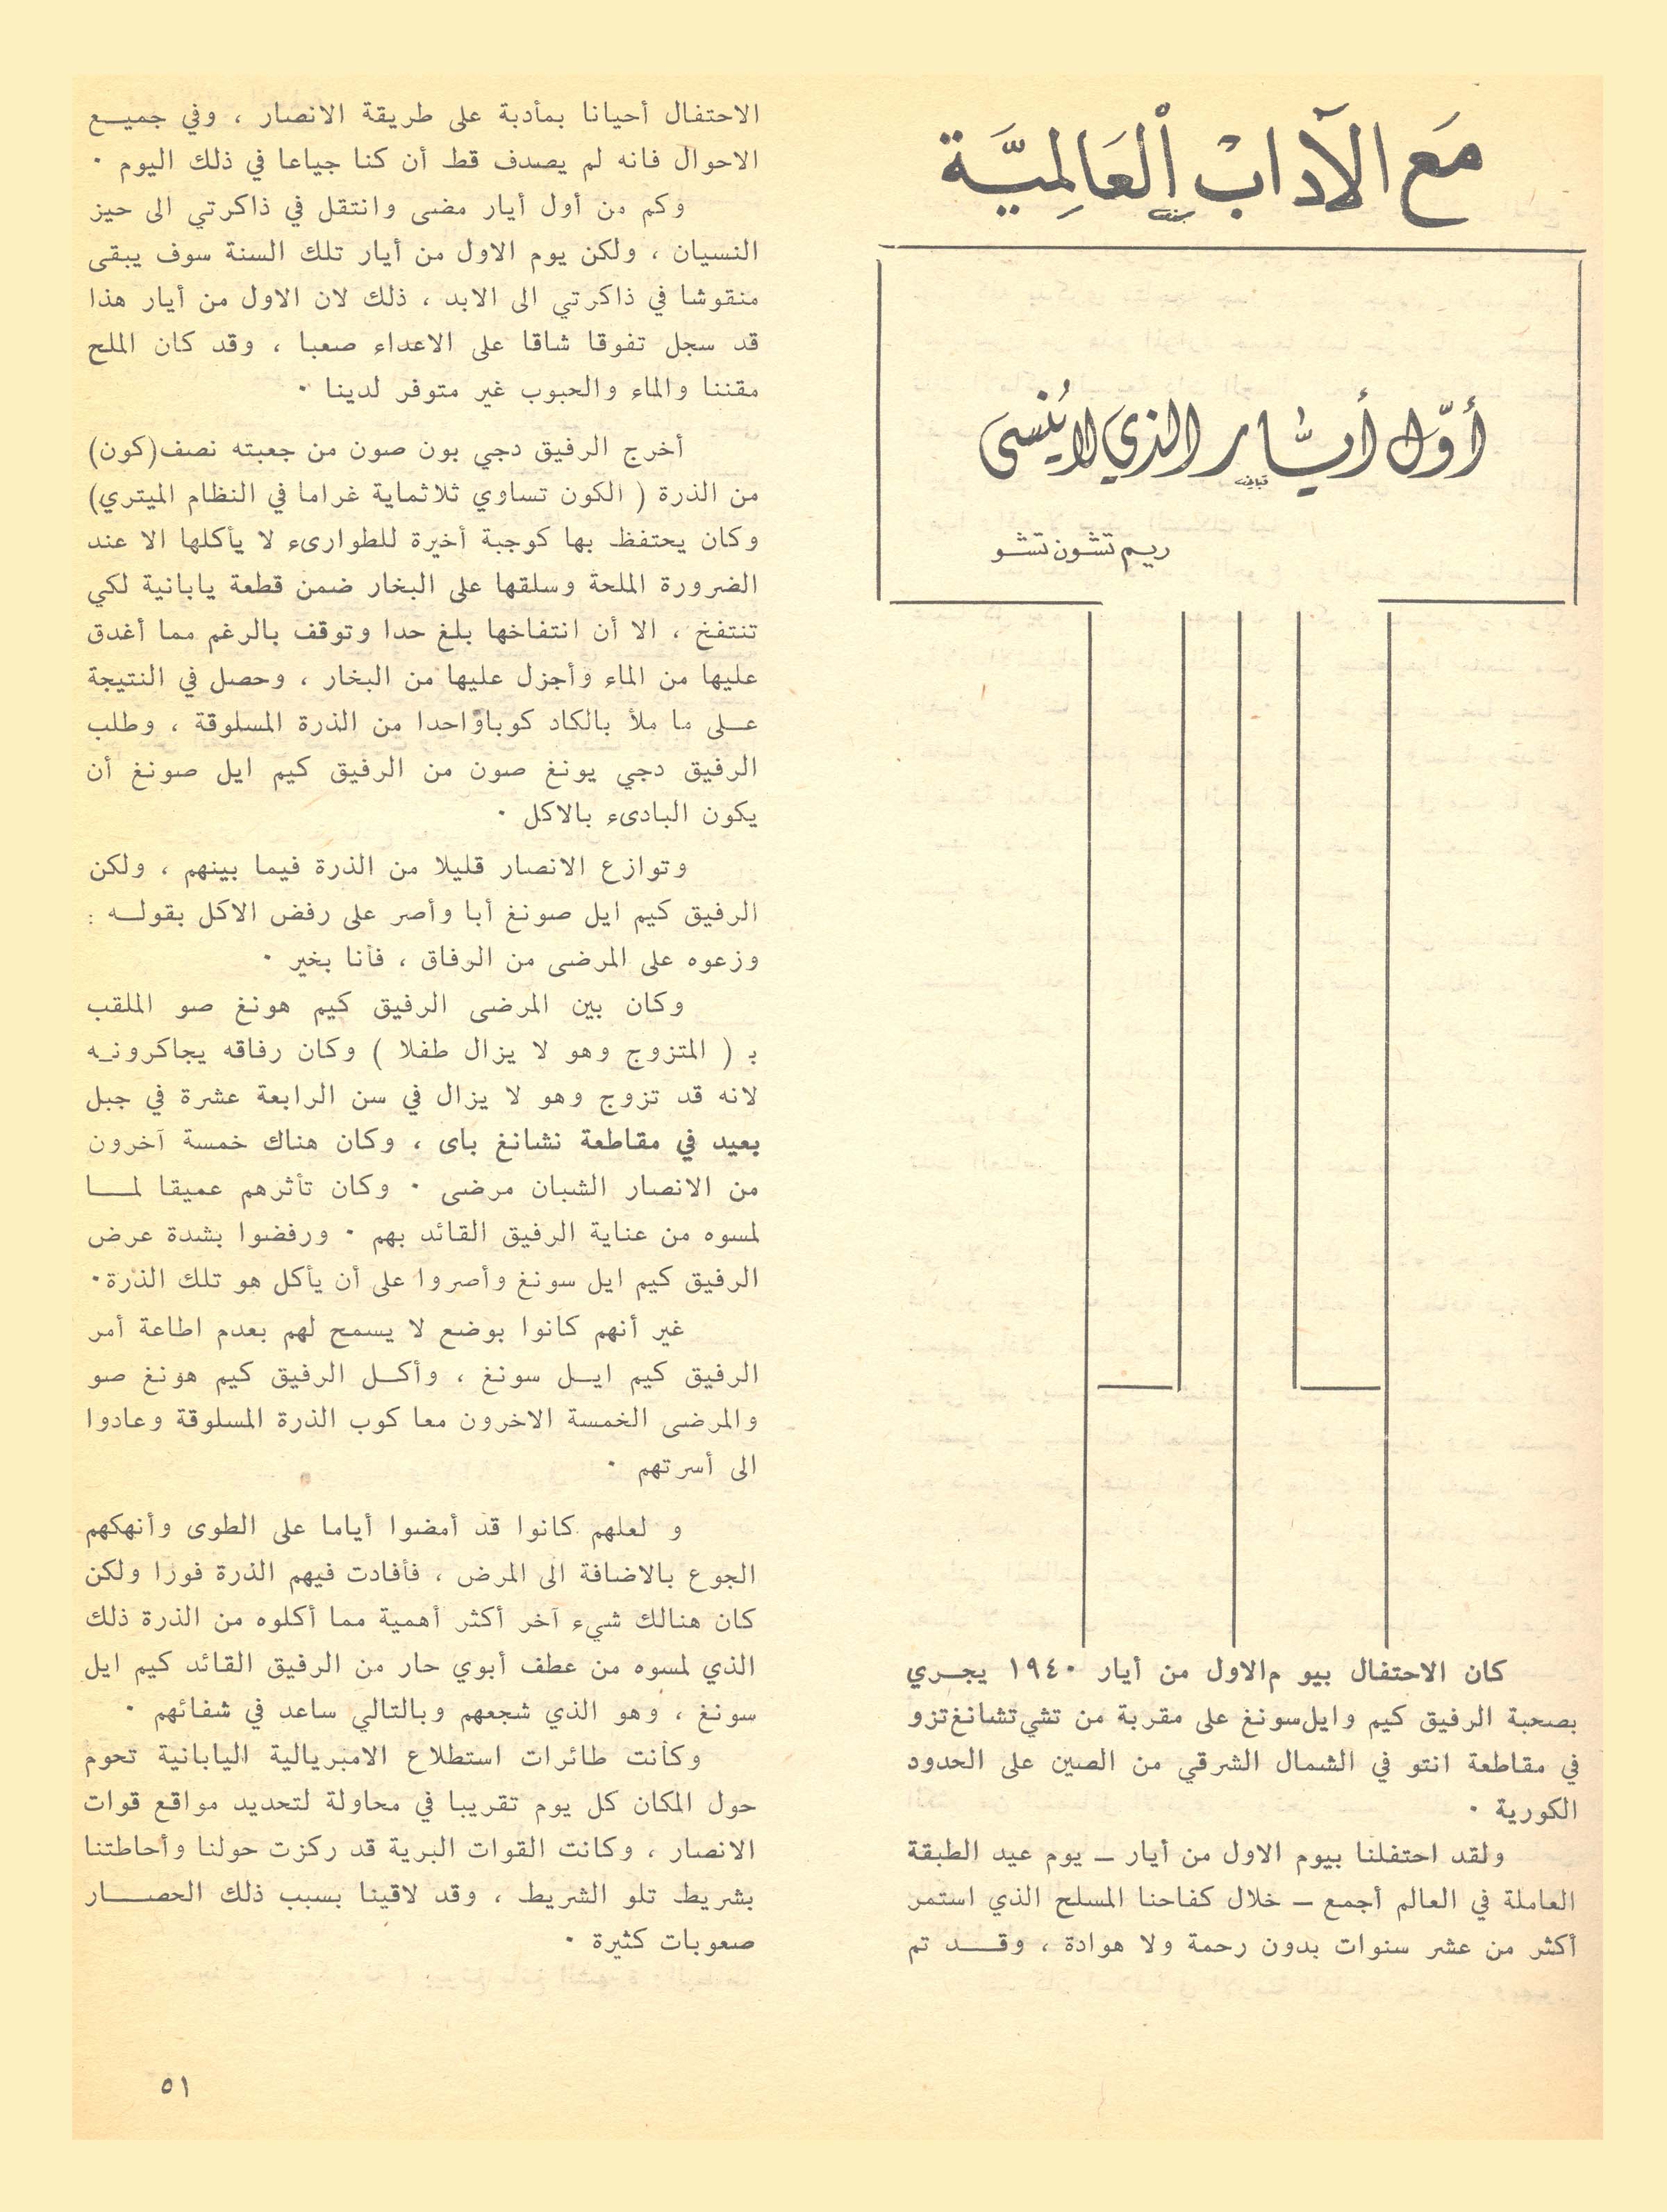 مَع الآدابْ العَالمِيَّة
أوّل أيَّار الذي لا يُنسى
ريم تشون تشو
كان الاحتفال بيو مالاول من أيار ١٩٤٠ يجري
بصحبة الرفيق كيم وايل سونغ على مقربة من تشي تشانغ تزو
في مقاطعة انتو في الشمال الشرقي من الصين على الحدود
الكورية ٠
ولقد احتفلنا بيوم الاول من أيار – يوم عيد الطبقة
العاملة في العالم أجمع – خلال كفاحنا المسلح الذي استمر
أكثر من عشر سنوات بدون رحمة ولا هوادة ، وقد تم
الاحتفال أحيانا بمأدبة على طريقة الانصار ، وفي جميع
الاحوال فانه لم يصدف قط أن كنا جياعا في ذلك اليوم ٠
وكم من أول أيار مضى وانتقل في ذاكرتي الى حيز
النسيان ، ولكن يوم الاول من أيار تلك السنة سوف يبقى
منقوشا في ذاكرتي الى الابد ، ذلك لان الاول من أيار هذا
قد سجل تفوقا شاقا على الاعداء صعبا ، وقد كان الملح
مقننا والماء والحبوب غير متوفر لدينا ٠
أخرج الرفيق دجي بون صون من جعبته نصف (كون)
من الذرة ( الكون تساوي ثلاثماية غراما في النظام الميتري)
وكان يحتفظ بها كوجبة أخيرة للطوارىء لا يأكلها الا عند
الضرورة الملحة وسلقها على البخار ضمن قطعة يابانية لكي
تنتفخ ، الا أن انتفاخها بلغ حدا وتوقف بالرغم مما أغدق
عليها من الماء وأجزل عليها من البخار ، وحصل في النتيجة
على ما ملأ بالكاد كوباواحدا من الذرة المسلوقة ، وطلب
الرفيق دجي يونغ صون من الرفيق كيم ايل صونغ أن
يكون البادىء بالاكل ٠
وتوازع الانصار قليلا من الذرة فيما بينهم ، ولكن
الرفيق كيم ايل صونغ أبا وأصر على رفض الاكل بقوله :
وزعوه على المرضى من الرفاق ، فأنا بخير ٠
وكان بين المرضى الرفيق كيم هونغ صو الملقب
بـ ( المتزوج وهو لا يزال طفلا ) وكان رفاقه يجاكرونه
لانه قد تزوج وهو لا يزال في سن الرابعة عشرة في جبل
بعيد في مقاطعة نشانغ باى ، وكان هناك خمسة آخرون
من الانصار الشبان مرضى ٠ وكان تأثرهم عميقا لما
لمسوه من عناية الرفيق القائد بهم ٠ ورفضوا بشدة عرض
الرفيق كيم ايل سونغ وأصروا على أن يأكل هو تلك الذرة٠
غير أنهم كانوا بوضع لا يسمح لهم بعدم اطاعة أمر
الرفيق كيم ايل سونغ ، وأكل الرفيق كيم هونغ صو
والمرضى الخمسة الاخرون معا كوب الذرة المسلوقة وعادوا
الى أسرتهم ٠
و لعلهم كانوا قد أمضوا أياما على الطوى وأنهكهم
الجوع بالاضافة الى المرض ، فأفادت فيهم الذرة فورا ولكن
كان هنالك شيء آخر أكثر أهمية مما أكلوه من الذرة ذلك
الذي لمسوه من عطف أبوي حار من الرفيق القائد كيم ايل
سونغ ، وهو الذي شجعهم وبالتالي ساعد في شفائهم ٠
وكانت طائرات استطلاع الامبريالية اليابانية تحوم
حول المكان كل يوم تقريبا في محاولة لتحديد مواقع قوات
الانصار ، وكانت القوات البرية قد ركزت حولنا وأحاطتنا
بشريط تلو الشريط ، وقد لاقينا بسبب ذلك الحصار
صعوبات كثيرة ٠
٥١